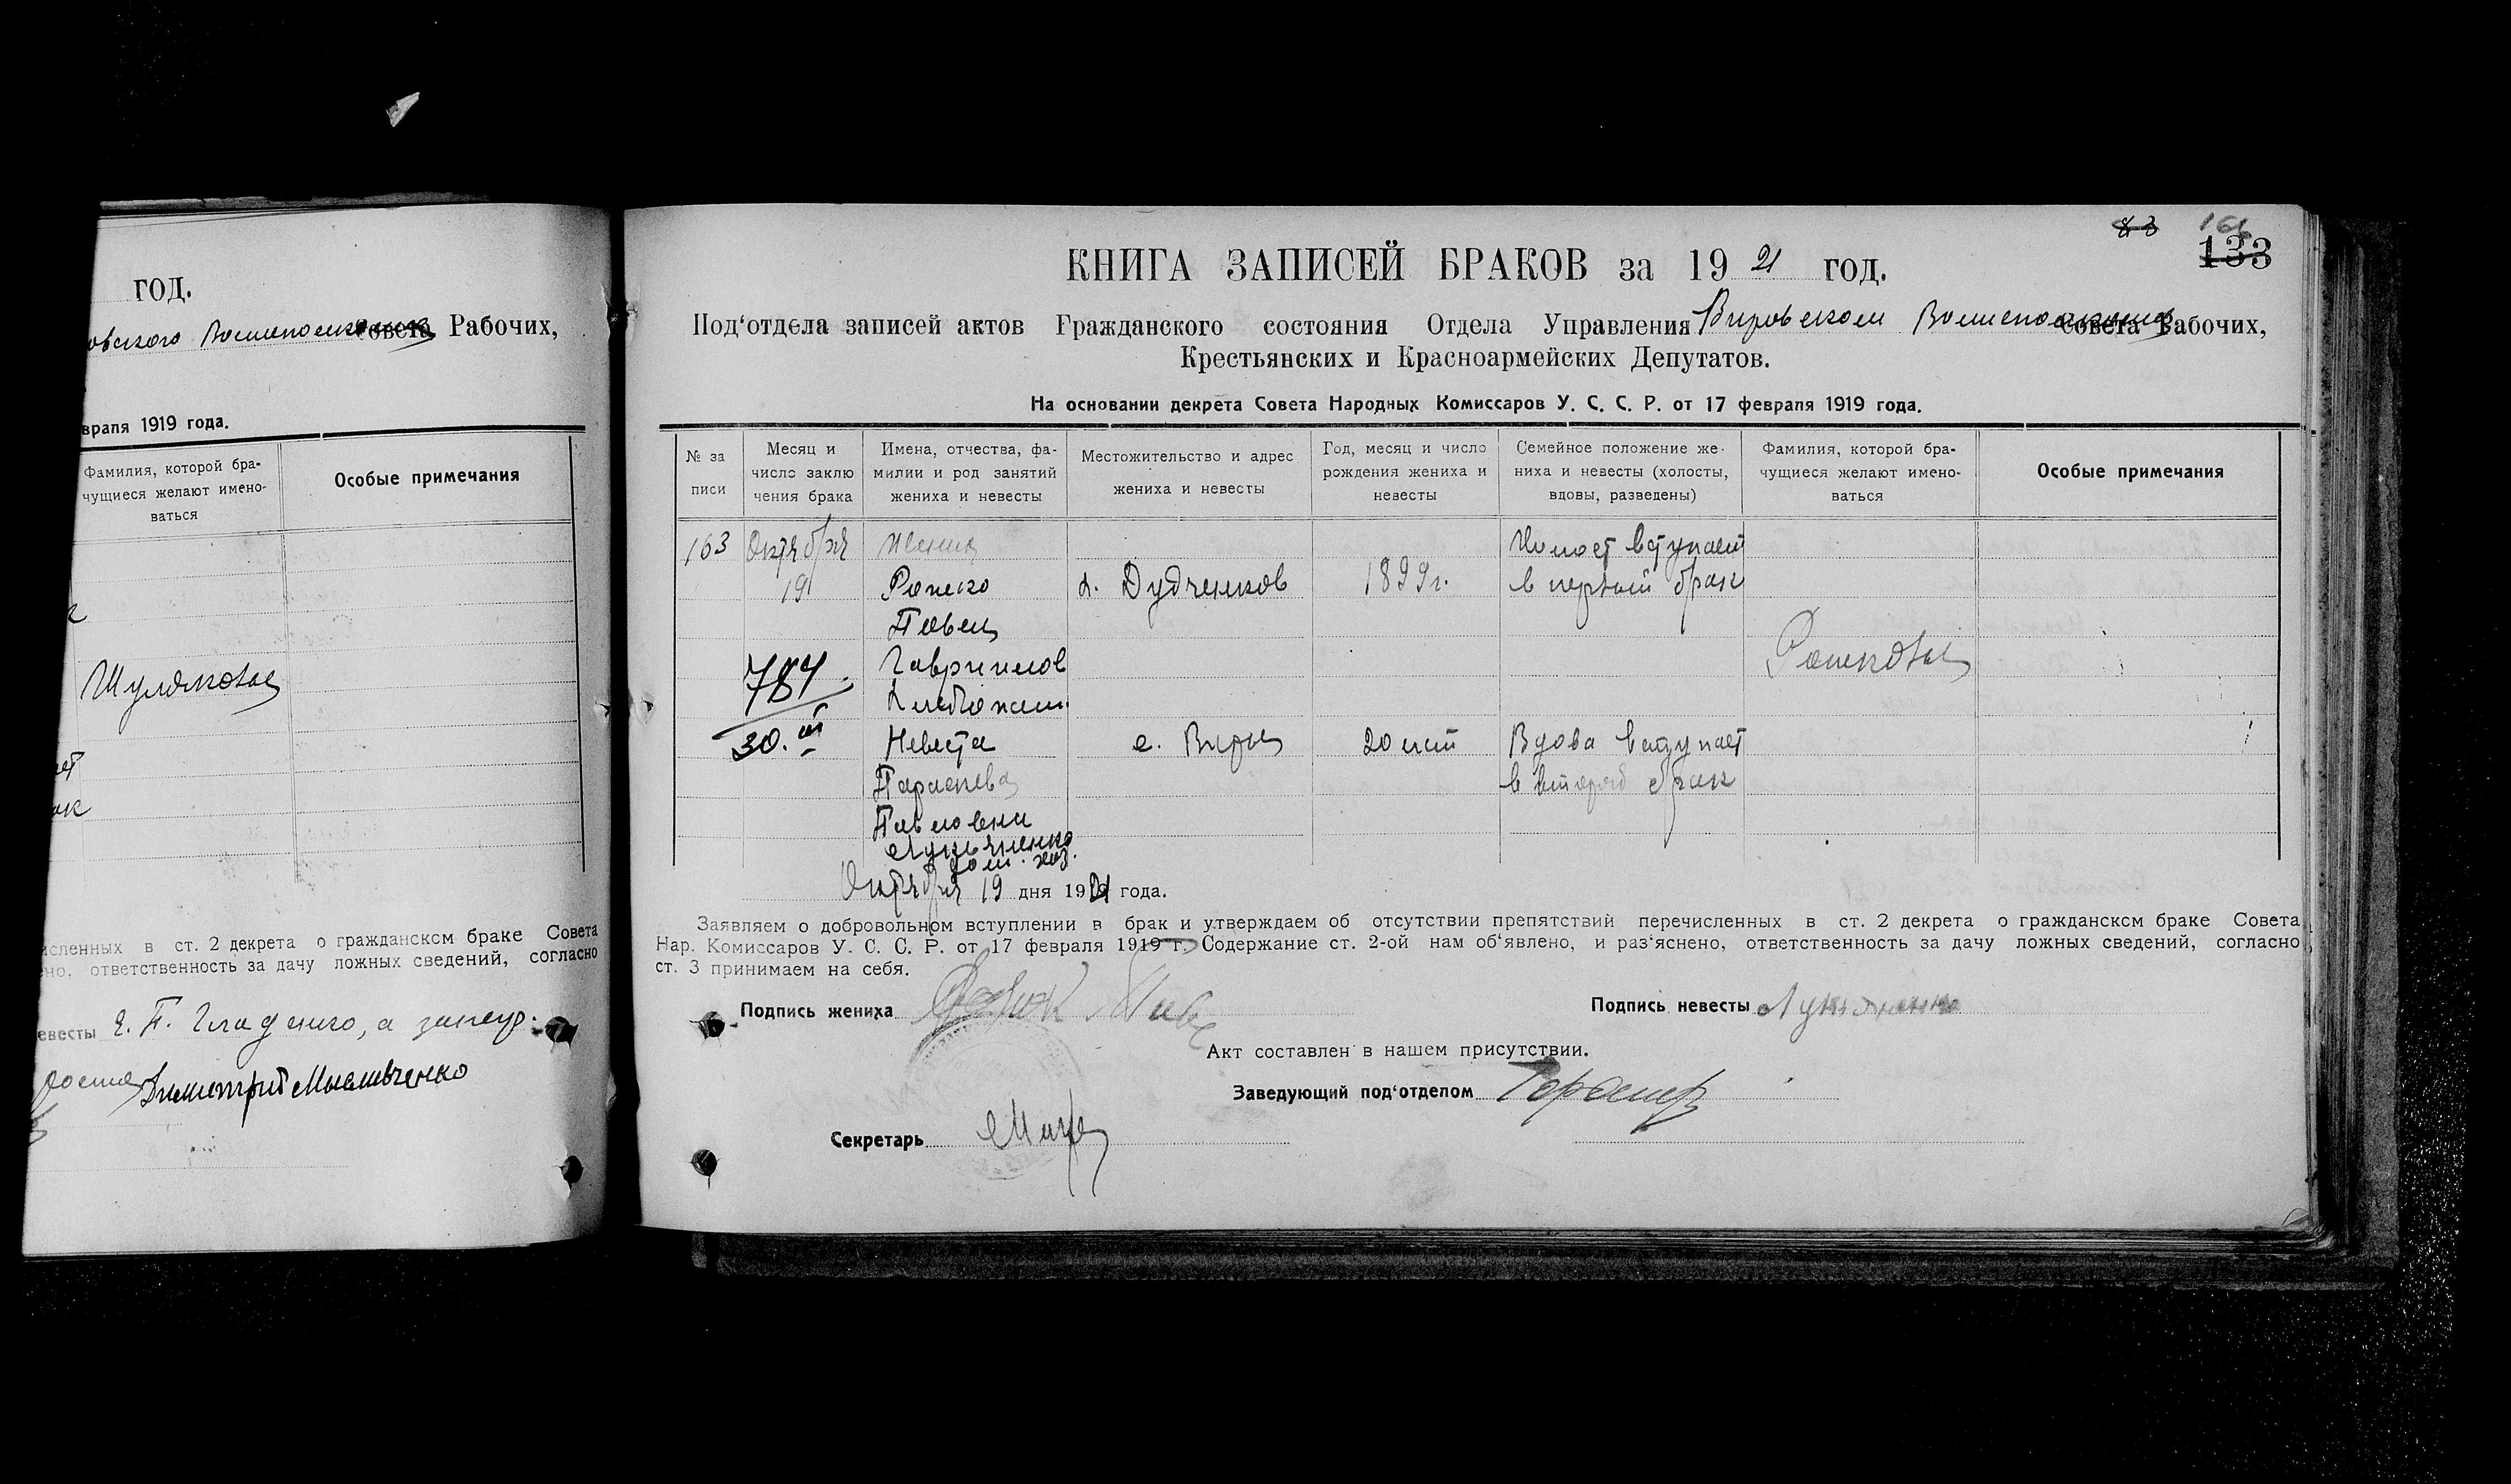 год.
Рабочих,
враля 1919 года.
Фамилия, которой бра-
чущиеся желают имено-
ваться
Особые примечания
ак
исленных в ст. 2 декрета о гражданском браке Совета
но, ответственность за дачу ложных сведений, согласно
евесты Е. П.
83
133
КНИГА ЗАПИСЕЙ БРАКОВ за 19 21 год.
Под‘отдела записей актов Гражданского состояния Отдела Управления Совета Рабочих,
Крестьянских и Красноармейских Депутатов.
На основании декрета Совета Народных Комиссаров У. С. С. Р. от 17 февраля 1919 года.
№ за
писи
Месяц и
число заклю
чения брака
Имена, отчества, фа-
милии и род занятий
жениха и невесты
Местожительство и адрес
жениха и невесты
Год, месяц и число
рождения жениха и
невесты
Семейное положение же-
ниха и невесты (холосты,
вдовы, разведены)
Фамилия, которой бра-
чущиеся желают имено-
ваться
Особые примечания
163 Октября Жених Холост вступает
19 х. Дудченков 1899г. в первый брак
Павел
Гаврилов
784
30.
Невеста с. Виры 20 лет Вдова вступает
Параскева в второй брак
Павловна
Лукьяненко
дом. хоз.
Октября 19 дня 1921 года.
Заявляем о добровольном вступлении в брак и утверждаем об отсутствии препятствий перечисленных в ст. 2 декрета о гражданском браке Совета
Нар. Комиссаров У. С. С. Р. от 17 февраля 1919 г. Содержание ст. 2-ой нам об‘явлено, и раз‘яснено, ответственность за дачу ложных сведений, согласно
ст. 3 принимаем на себя.
Подпись жениха
Подпись невесты
Акт составлен в нашем присутствии.
Заведующий под‘отделом
Секретарь